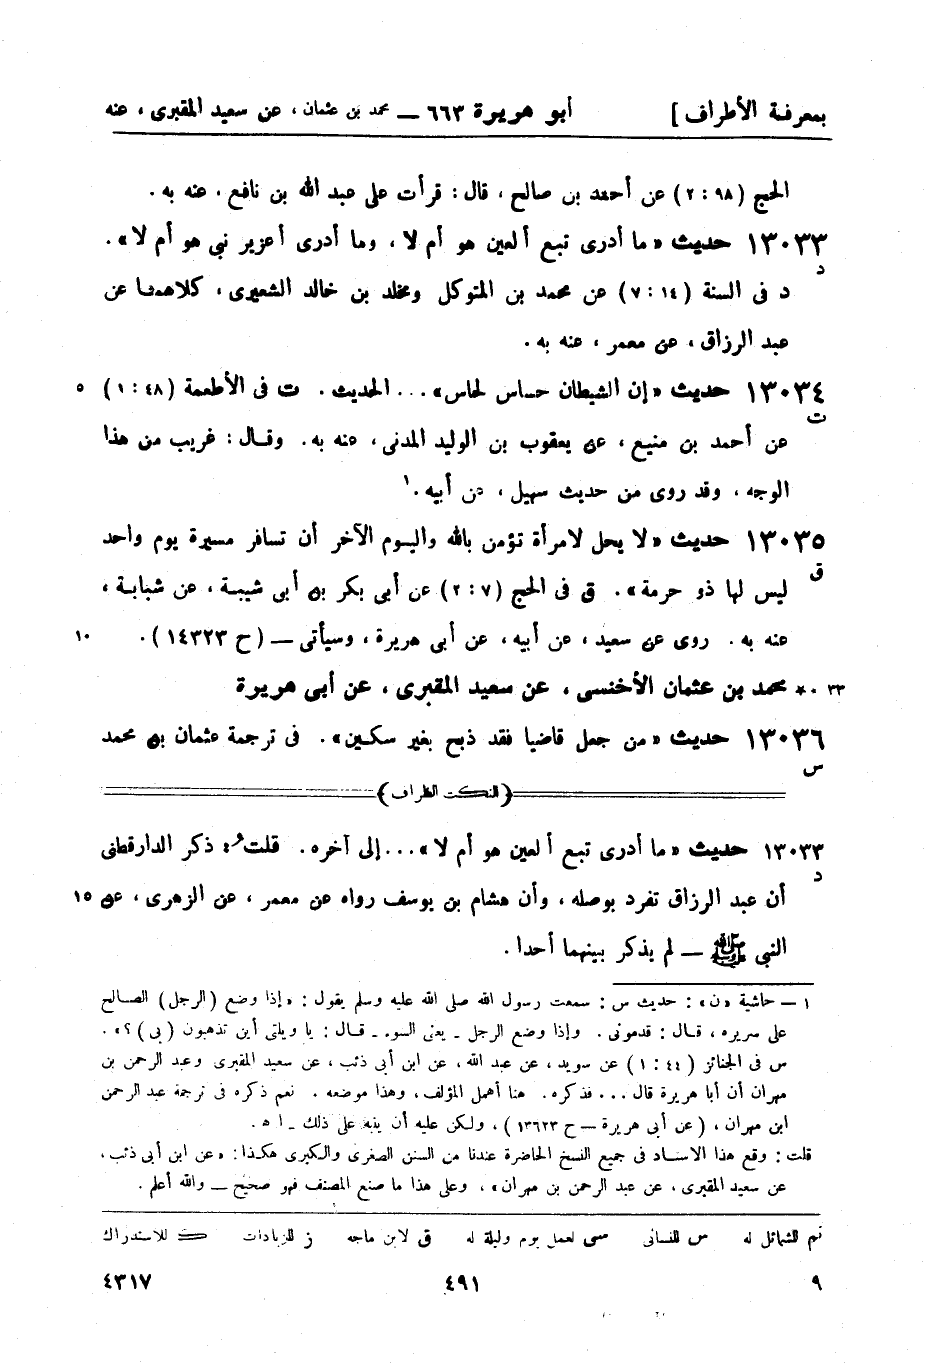 بمعرفة الأطراف ] أبو هريرة ٦٦٣ — محمد بن عثمان ، عن سعيد المقبرى ، عنه
الحج (٩٨ : ٢) عن أحمد بن صالح ، قال : قرأت على عبد الله بن نافع ، عنه به .
١٣٠٣٣ حديث «ما أدرى تبع ألعين هو أم لا ، وما أدرى أعزير نبى هو أم لا» .
د
د فى السنة (١٤ : ٧) عن محمد بن المتوكل ومخلد بن خالد الشعيرى ، كلاهما عن
عبد الرزاق ، عن معمر ، عنه به .
١٣٠٣٤ حديث «إن الشيطان حساس لحاس» ... الحديث . ت فى الأطعمة (٤٨ : ١) ٥
ت
عن أحمد بن منيع ، عن يعقوب بن الوليد المدنى ، عنه به . وقال : غريب من هذا
الوجه ، وقد روى من حديث سهيل ، عن أبيه . ١
١٣٠٣٥ حديث «لا يحل لامرأة تؤمن بالله واليوم الآخر أن تسافر مسيرة يوم واحد
ق
ليس لها ذو حرمة» . ق فى الحج (٧ : ٢) عن أبى بكر بن أبى شيبة ، عن شبابة ،
عنه به . روى عن سعيد ، عن أبيه ، عن أبى هريرة ، وسيأتى — (ح ١٤٣٢٣) . ١٠
٣٣ ٠* محمد بن عثمان الأخنسى ، عن سعيد المقبرى ، عن أبى هريرة
١٣٠٣٦ حديث «من جعل قاضيا فقد ذبح بغير سكين» . فى ترجمة عثمان بن محمد
س
(النكت الظراف)
١٣٠٣٣ حديث «ما أدرى تبع ألعين هو أم لا» ... إلى آخره . قلت : ذكر الدارقطنى
د
أن عبد الرزاق تفرد بوصله ، وأن هشام بن يوسف رواه عن معمر ، عن الزهرى ، عن ١٥
النبى ﷺ — لم يذكر بينهما أحدا .
١ — حاشية «ن» : حديث س : سمعت رسول الله صلى الله عليه وسلم يقول : «إذا وضع (الرجل) الصالح
على سريره ، قال : قدمونى . وإذا وضع الرجل ـ يعنى السوء ـ قال : يا ويلتى أين تذهبون (بى) ؟» .
س فى الجنائز (٤٤ : ١) عن سويد ، عن عبد الله ، عن ابن أبى ذئب ، عن سعيد المقبرى وعبد الرحمن بن
مهران أن أبا هريرة قال ... فذكره . هنا أهمل المؤلف ، وهذا موضعه . نعم ذكره فى ترجمة عبد الرحمن
ابن مهران ، (عن أبى هريرة — ح ١٣٦٢٣) ، ولكن عليه أن ينبه على ذلك ـ ا ه .
قلت : وقع هذا الاسناد فى جميع النسخ الحاضرة عندنا من السنن الصغرى والكبرى هكذا : «عن ابن أبى ذئب ،
عن سعيد المقبرى ، عن عبد الرحمن بن مهران» ، وعلى هذا ما صنع المصنف فهو صحيح — والله أعلم .
تم للشمائل له س للنسائى سى لعمل يوم وليلة له ق لابن ماجه ز للزيادات ك للاستدراك
٩ ٤٩١ ٤٣١٧